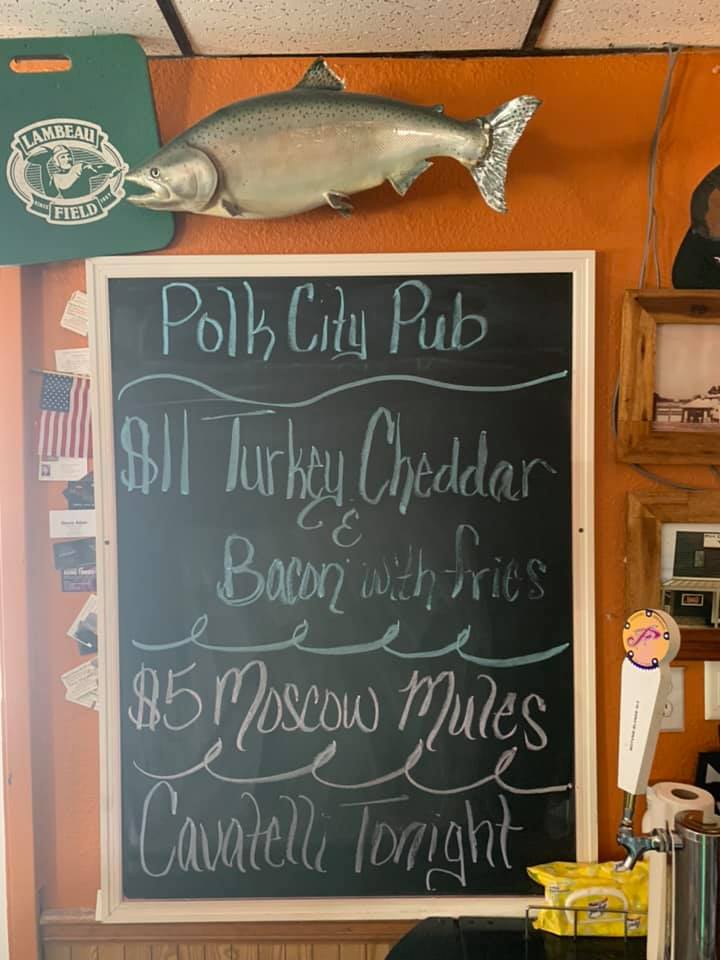 LAMBEAU
FIELD
Polk City Pub
$11 Turkey Cheddar
&
Bacon with fries
$5 Moscow Mules
Cavatelli Tonight